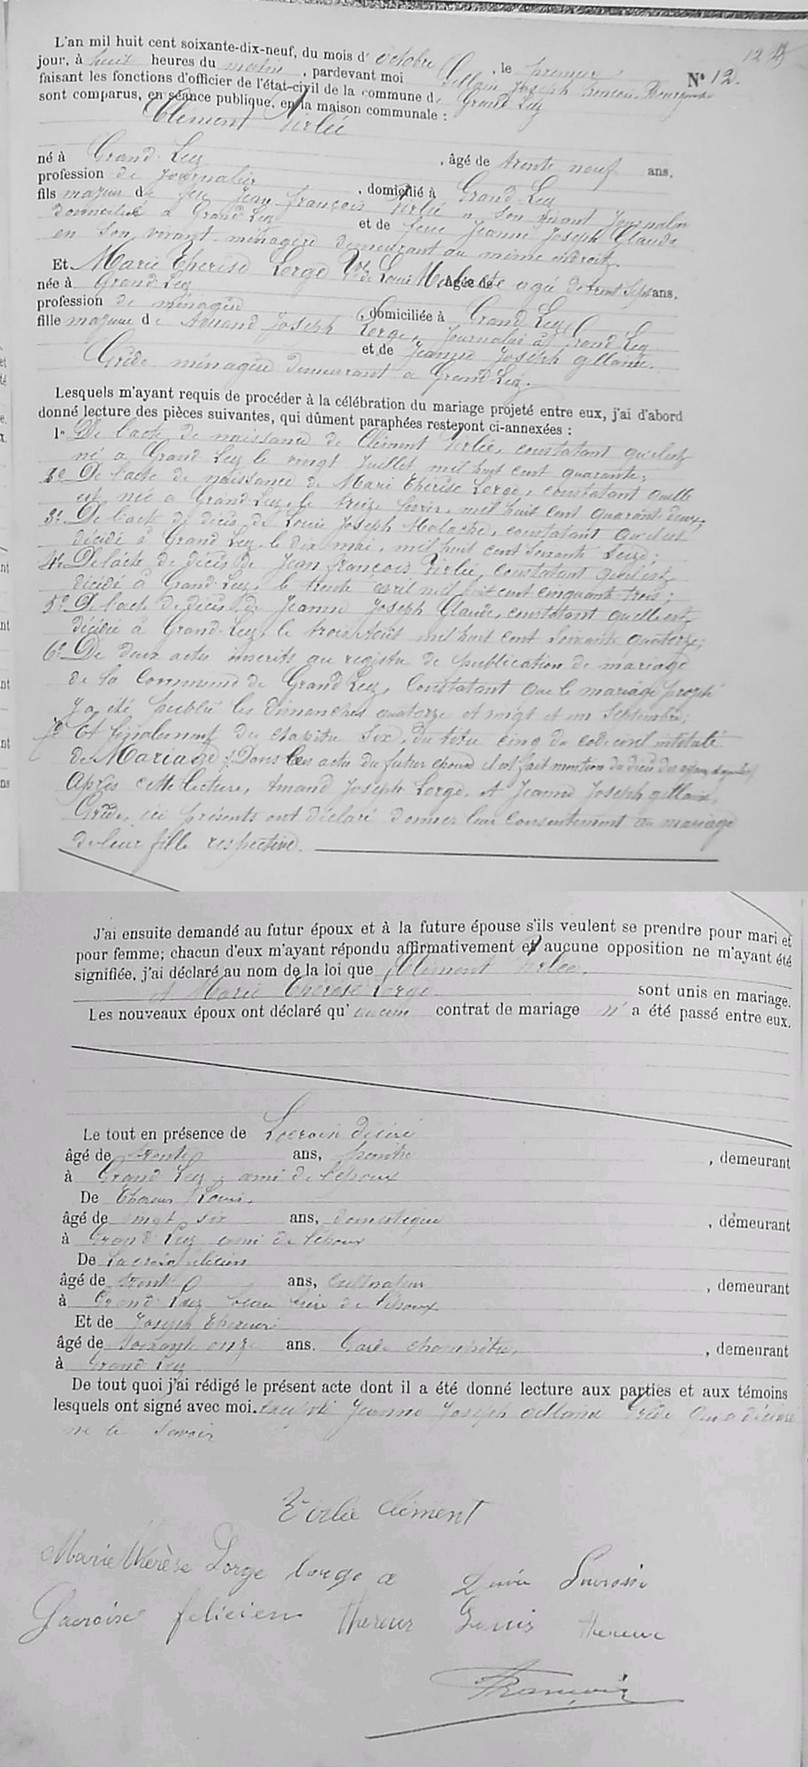 L'an mil huit cent soixante-dix-neuf, du mois d'octobre, le premier
jour, à huit heures du matin, pardevant moi Gillain Joseph François Bourgmestre
N° 12.
faisant les fonctions d'officier de l'état-civil de la commune de Grand Leez
sont comparus, en séance publique, en la maison communale :
Clément Virlée
né à Grand-Leez, âgé de trente neuf ans,
profession de journalier, domicilié à Grand Leez
fils majeur de feu Jean François Virlée en son vivant journalier
domicilié à Grand Leez et de feue Jeanne Joseph Claude
en son vivant ménagère demeurant au même endroit.
Et Marie Therèse Lorge Vve de Louis Malache agé de trent sept ans,
née à Grand Leez
profession de ménagère, domiciliée à Grand Leez
fille majeure de Amand Joseph Lorge, journalier à Grand Leez
et de Jeanne Joseph gillaine
Grède ménagère demeurant a Grand-Leez.
Lesquels m'ayant requis de procéder à la célébration du mariage projeté entre eux, j'ai d'abord
donné lecture des pièces suivantes, qui dûment paraphées resteront ci-annexées :
1° De l'acte de naissance de Clément Virlée, constatant qu'il est
né a Grand Leez le vingt Juillet mil huit cent quarante;
2° De l'acte de naissance de Marie Therèse Lorge, constatant quelle
est née a Grand-Leez, le treize fevrier mil huit cent quarante deux;
3° De l'acte de décès de Louis Joseph Malache, constatant qu'il est
décédé à Grand Leez le dix mai, mil huit cent soixante seize;
4° De l'acte de décès de Jean François Virlée, constatant qu'il est
décédé à Grand-Leez, le trente avril mil huit cent cinquante-trois;
5° De l'acte de décès de Jeanne Joseph Claude, constatant quelle est
décédée à Grand-Leez, le trois août mil huit cent soixante quatorze;
6° De deux actes inscrits au registre de publication de mariage
de la Commune de Grand Leez, Constatant que le mariage projeté
y a été publié les Dimanches quatorze et vingt et un Septembre;
7° Et finalement du chapitre Six, du titre cinq du code civil intitulé
du Mariage; Dans les actes du futur époux il est fait mention du décès des
Après cette lecture, Amand Joseph Lorge, et Jeanne Joseph gillain,
Grède, ici présents ont déclaré donner leur consentement au mariage
de leur fille respective.
J'ai ensuite demandé au futur époux et à la future épouse s'ils veulent se prendre pour mari et
pour femme; chacun d'eux m'ayant répondu affirmativement et aucune opposition ne m'ayant été
signifiée, j'ai déclaré au nom de la loi que Clément Virlée
et Marie Therèse Lorge sont unis en mariage.
Les nouveaux époux ont déclaré qu'aucun contrat de mariage n'a été passé entre eux.
Le tout en présence de Lacroix désiré
âgé de trente ans, demeurant
à Grand Leez, ami de l'époux
De Thereur Louis,
âgé de vingt six ans, domestique, demeurant
à Grand Leez ami de l'époux
De Lacroix félicien
âgé de trente ans, cultivateur, demeurant
à Grand Leez beau frère de l'époux
Et de Joseph Thereur
âgé de soixante onze ans. Garde champêtre, demeurant
à Grand Leez
De tout quoi j'ai rédigé le présent acte dont il a été donné lecture aux parties et aux témoins
lesquels ont signé avec moi. excepté Jeanne Joseph Gillaine Grède qui a déclaré
ne le savoir
Virlée Clément
Marie thérèse Lorge lorge a Lacroix
Lacroix felicien thereur Louis thereur